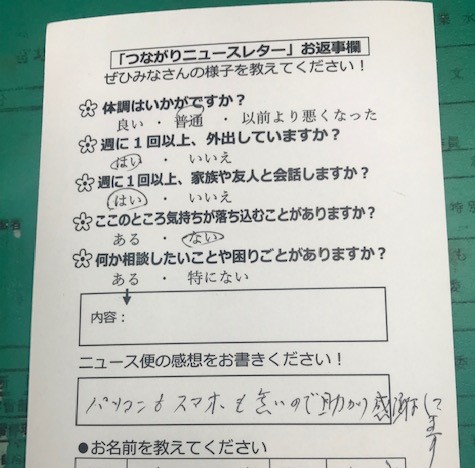 「つながりニュースレター」お返事欄
ぜひみなさんの様子を教えてください！
体調はいかがですか？
良い ・ 普通 ・ 以前より悪くなった
週に1回以上、外出していますか？
はい ・ いいえ
週に1回以上、家族や友人と会話しますか？
はい ・ いいえ
ここのところ気持ちが落ち込むことがありますか？
ある ・ ない
何か相談したいことや困りごとがありますか？
ある ・ 特にない
内容：
ニュース便の感想をお書きください！
パソコンもスマホも無いので助かり感謝してます
●お名前を教えてください